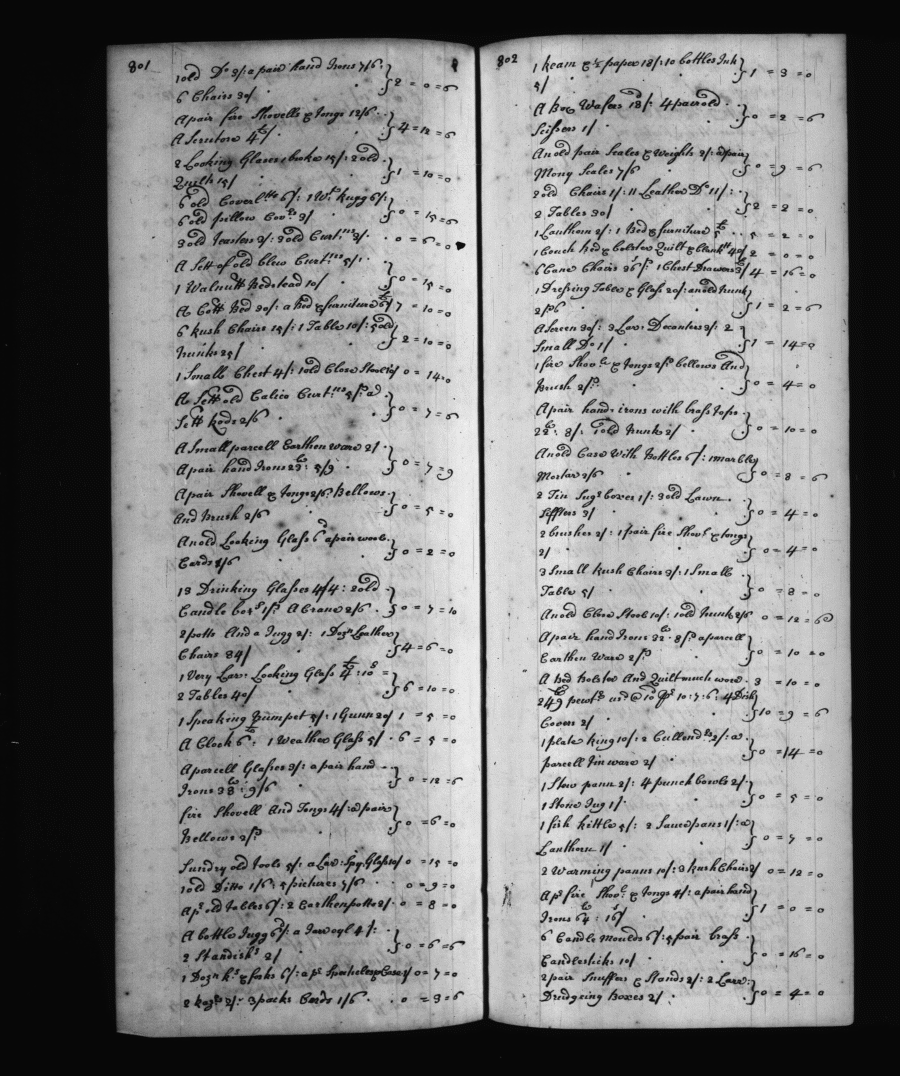 801
1 old Do 3/: a pair hand Irons 7/6 } 2 = 0 = 6
6 Chairs 30/
A pair fire Shovells & Tongs 12/6 } 4 = 12 = 6
A Scrutore 4£/
2 Looking Glases broke 15/: 2 old } 1 = 10 = 0
Quilts 15/
6 old Coverlds 6/: 1 Wt Rugg 6/: } 0 = 15 = 6
6 old pillow Covrs 3/
3 old Teasters 3/: 3 old Curtins 3/ 0 = 6 = 0
A Sett of old blew Curtins 5/: } 0 = 15 = 0
1 Wallnutt Bedstead 10/
A Cott Bed 30/: a Bed & furniture 6£/ 7 = 10 = 0
6 Rush Chairs 15/: 1 Table 10/: 5 old } 2 = 10 = 0
Trunks 25/
1 Small Chest 4/: 1 old Close Stool 10/ 0 = 14 = 0
A Sett old Calico Curtins 5/: a } 0 = 7 = 6
Sett Rods 2/6
A Small parcell Earthen ware 2/ } 0 = 7 = 9
A pair hand Irons 23: 5/9
A pair Shovell & Tongs 2/6: Bellows } 0 = 5 = 0
And Brush 2/6
An old Looking Glass 6d a pair wool } 0 = 2 = 0
Cards 1/6
13 Drinking Glasses 4/4: 2 old } 0 = 7 = 10
Candle boxs 1/: A Crane 2/6
2 potts And a Jugg 2/: 1 Dozn Leather } 4 = 6 = 0
Chairs 84/
1 Very Lar: Looking Glass £4: 10s } 6 = 10 = 0
2 Tables 40/
1 Speaking Trumpet 5/: 1 Gunn 20/ 1 = 5 = 0
A Clock 6£: 1 Weather Glass 5/ 6 = 5 = 0
A parcell Glasses 3/: a pair hand } 0 = 12 = 6
Irons 38: 9/6
fire Shovell And Tongs 4/: a pair } 0 = 6 = 0
Bellows 2/
Sundry old tools 5/: a Lar: Spy Glass 10/ 0 = 15 = 0
1 old Ditto 1/6: 5 pictures 7/6 0 = 9 = 0
A pr old Tables 6/: 2 Earthen potts 2/ 0 = 8 = 0
A bottle Jugg 6d: a 4/: } 0 = 6 = 6
2 Standishs 2/
1 Dozn ks & forks 6/: a pr Spectacles & Case 1/ 0 = 7 = 0
2 2/: 3 packs Cards 1/6 0 = 3 = 6
802
1 Ream & ½ paper 18/: 10 bottles Ink } 1 = 3 = 0
5/
A Box Wafers 18d: 4 pair old } 0 = 2 = 6
Scissers 1/
An old pair Scales & Weights 2/: a pair } 0 = 9 = 6
Mony Scales 7/6
2 old Chairs 1/: 11 Leather Do 11/: } 2 = 2 = 0
2 Tables 30/
1 Lanthorn 2/: 1 Bed & furniture £5 5 = 2 = 0
1 Couch Bed & bolster Quilt & blanktt 40/ 2 = 0 = 0
6 Cane Chairs 36/: 1 Chest Drawers £3/ 4 = 16 = 0
1 Dressing Table & Glass 20/: an old trunk } 1 = 2 = 6
2/6
A Screen 30/: 3 Lar: Decanters 3/: 2 } 1 = 14 = 0
Small Do 1/
1 fire Shovle & tongs 2/: bellows And } 0 = 4 = 0
Brush 2/
A pair hand irons with brass tops } 0 = 10 = 0
22: 8/: 1 old trunk 2/
An old Case With Bottles 6/: 1 marble } 0 = 8 = 6
Mortar 2/6
2 Tin Sugr boxes 1/: 3 old Lawn } 0 = 4 = 0
Siffters 3/
2 brushes 2/: 1 pair fire Shovl & tongs } 0 = 4 = 0
2/
3 Small Rush Chairs 3/: 1 Small } 0 = 8 = 0
Table 5/
An old Close Stool 10/: 1 old Trunk 2/6 0 = 12 = 6
A pair hand Irons 32: 8/: a parcell } 0 = 10 = 0
Earthen Ware 2/
A bed Bolster And Quilt much wore 3 = 10 = 0
249 pewtr att @ 10d 10: 7: 6: 4 Dish } 10 = 9 = 6
Covers 2/
1 plate king 10/: 2 Cullendrs 2/: a } 0 = 14 = 0
parcell Tin ware 2/
1 Stew pann 2/: 4 punch bowls 2/ } 0 = 5 = 0
1 Stone Jug 1/
1 fish kittle 5/: 2 Saucepans 1/: a } 0 = 7 = 0
Lanthorn 1/
2 Warming panns 10/: 3 Rush Chairs 2/ 0 = 12 = 0
A pr fire Shovl & Tongs 4/: a pair hand } 1 = 0 = 0
Irons 64: 16/
6 Candle Moulds 6/: 5 pair brass } 0 = 16 = 0
Candlesticks 10/
2 pair Snuffers & Stands 2/: 2 Larr } 0 = 4 = 0
Drudgeing Boxes 2/